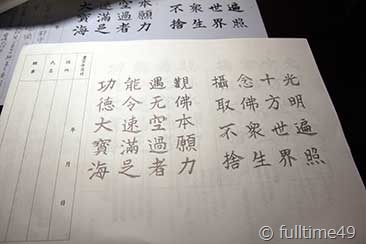 遍照
世界
衆生
不捨
本願力
空過者
速滿足
大寶海
光明遍照
十方世界
念佛衆生
攝取不捨
觀佛本願力
遇无空過者
能令速滿足
功德大寶海
年 月 日